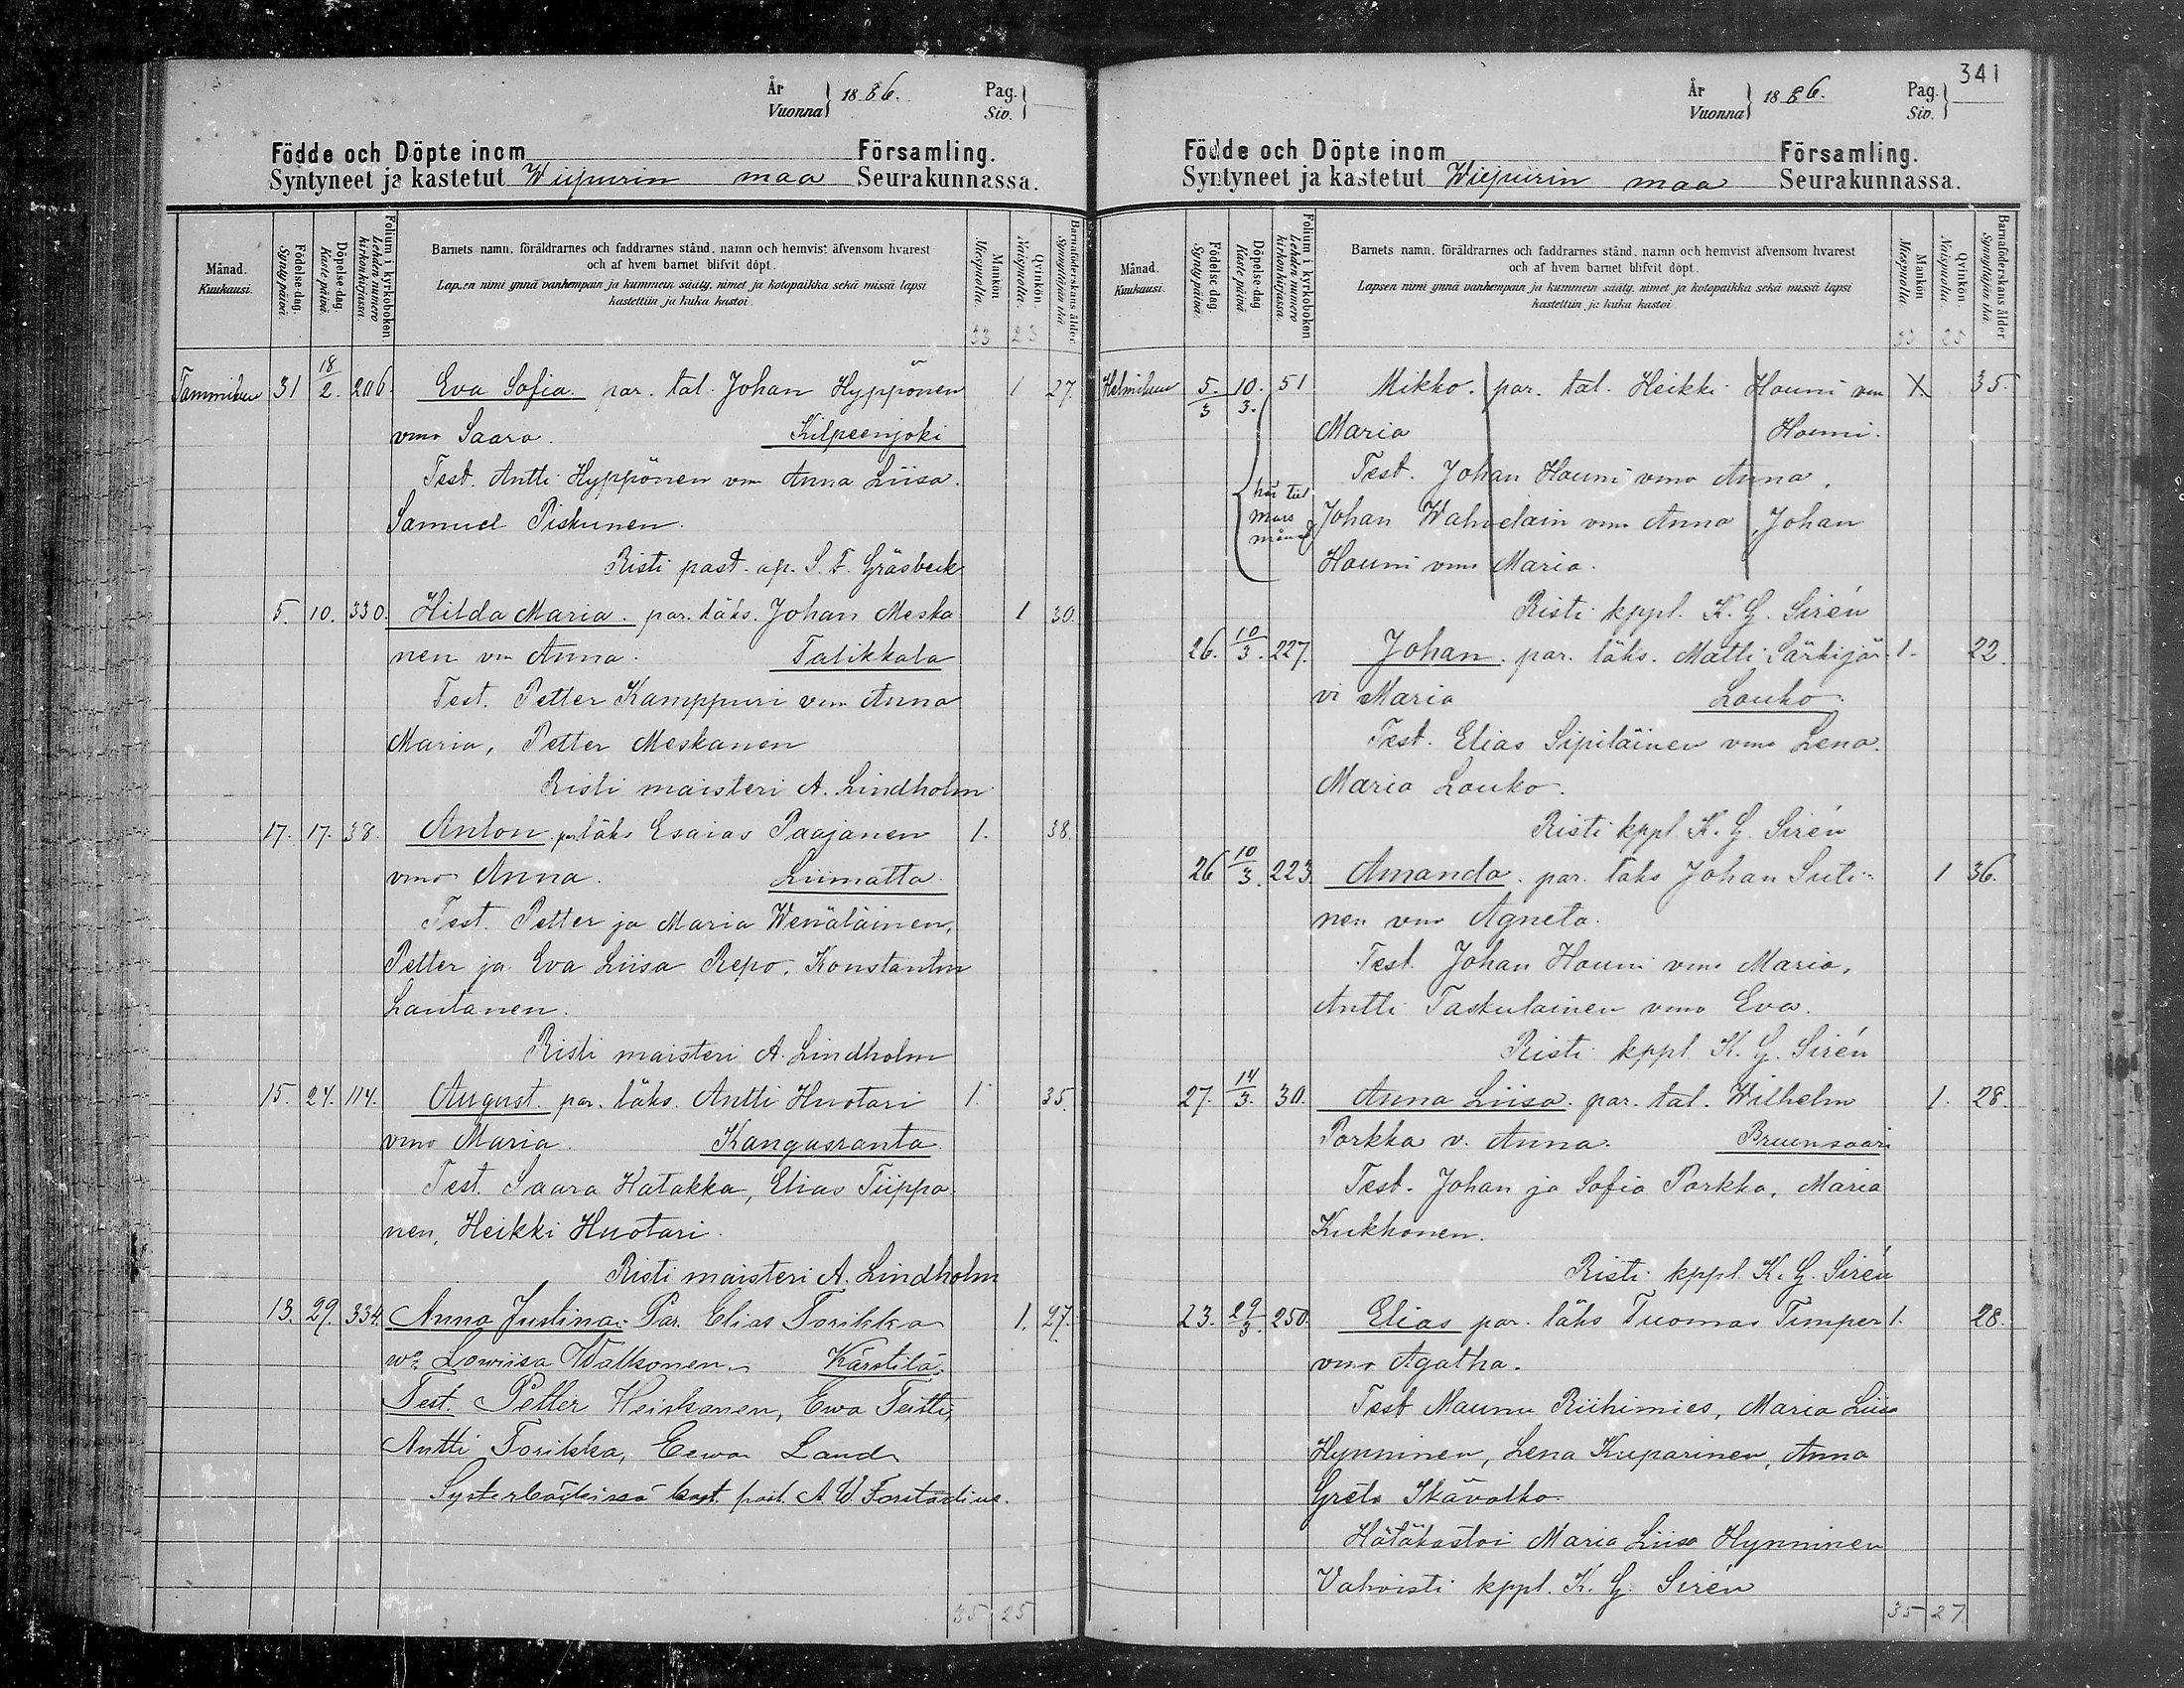 År
Vuonna } 1886.
Pag.
Siv. }
Födde och Döpte inom Församling.
Syntyneet ja kastetut Wiipurin maa Seurakunnassa.
Månad.
Kuukausi.
Födelse-dag.
Syntypäivä.
Döpelse-dag.
Kastepäivä.
Folium i kyrkoboken
Lehden numero kirkonkirjassa.
Barnets namn, föräldrarnes och faddrarnes stånd, namn och hemvist äfvensom hvarest
och af hvem barnet blifvit döpt.
Lapsen nimi ynnä vanhempain ja kummein sääty, nimet ja kotopaikka sekä missä lapsi
kastettiin ja kuka kastoi.
Mankön.
Miespuolia.
Qvinkön.
Naispuolia.
Barnaföderskans ålder.
Synnyttäjän ikä.
33 23
Tammikuu 31 18/2. 206. Eva Sofia. par. tal. Johan Hyppönen 1 27.
vmo Saara. Kilpeenjoki
Test. Antti Hyppönen vm Anna Liisa.
Samuel Piskunen.
Risti past. ap. S. F. Gräsbeck
5. 10. 330. Hilda Maria. par. läks. Johan Meska 1 30.
nen vm Anna. Talikkala
Test. Petter Kamppuri vm Anna
Maria, Petter Meskanen
Risti maisteri A. Lindholm
17. 17. 38. Anton par läks Esaias Paajanen 1. 38.
vmo Anna. Liimatta.
Test. Petter ja Maria Wenäläinen,
Petter ja Eva Liisa Repo. Konstantin
Lautanen.
Risti maisteri A. Lindholm
15. 24. 114. August. par. läks. Antti Huotari 1. 35.
vmo Maria. Kangasranta.
Test. Saara Hatakka, Elias Tiippa
nen, Heikki Huotari.
Risti maisteri A. Lindholm
13. 29. 334. Anna Justina. Par. Elias Torikka 1. 27.
wo Lowiisa Walkonen. Kärstilä.
Test. Petter Heiskanen, Ewa Teitti,
Antti Torikka, Eewa Land
kast. past. A. W. Forstadius.
35 25
341
År
Vuonna } 1886.
Pag.
Siv. }
Födde och Döpte inom Församling.
Syntyneet ja kastetut Wiipurin maa Seurakunnassa.
Månad.
Kuukausi.
Födelse-dag.
Syntypäivä.
Döpelse-dag.
Kastepäivä.
Folium i kyrkoboken
Lehden numero kirkonkirjassa.
Barnets namn, föräldrarnes och faddrarnes stånd, namn och hemvist äfvensom hvarest
och af hvem barnet blifvit döpt.
Lapsen nimi ynnä vanhempain ja kummein sääty, nimet ja kotopaikka sekä missä lapsi
kastettiin ja kuka kastoi.
Mankön.
Miespuolia.
Qvinkön.
Naispuolia.
Barnaföderskans ålder.
Synnyttäjän ikä.
35 25
Helmikuu 5/3 10. 3. 51 Mikko. par. tal. Heikki Houni vm X. 35.
Maria Houni.
Test. Johan Houni vmo Anna.
hör till
mars
månad
Johan Wahvelain vmo Anna Johan
Houni vmo Maria.
Risti kppl. K. G. Sirén
26. 10/3. 227. Johan. par. läks. Matti Särkijär 1. 22.
vi Maria Louko.
Test. Elias Sipiläinen vmo Lena.
Maria Louko.
Risti kppl. K. G. Sirén
26 10/3. 223 Amanda. par. läks Johan Suti- 1 36.
nen vmo Agneta.
Test. Johan Houni vmo Maria,
Antti Taskulainen vmo Eva.
Risti kppl K. G. Sirén
27. 14/3. 30. Anna Liisa. par. tal. Wilhelm 1. 28.
Porkka v. Anna. Bruunsaari
Test. Johan ja Sofia Porkka, Maria
Kukkonen.
Risti kppl. K. G. Sirén
23. 29/3. 250. Elias par. läks Tuomas Timper 1. 28.
vmo Agatha.
Test Maunu Riihimies, Maria Liisa
Hynninen, Lena Kuparinen, Anna
Greta Skävalko.
Hätäkastoi Maria Liisa Hynninen
Vahvisti kppl. K. G. Sirén
35 27.